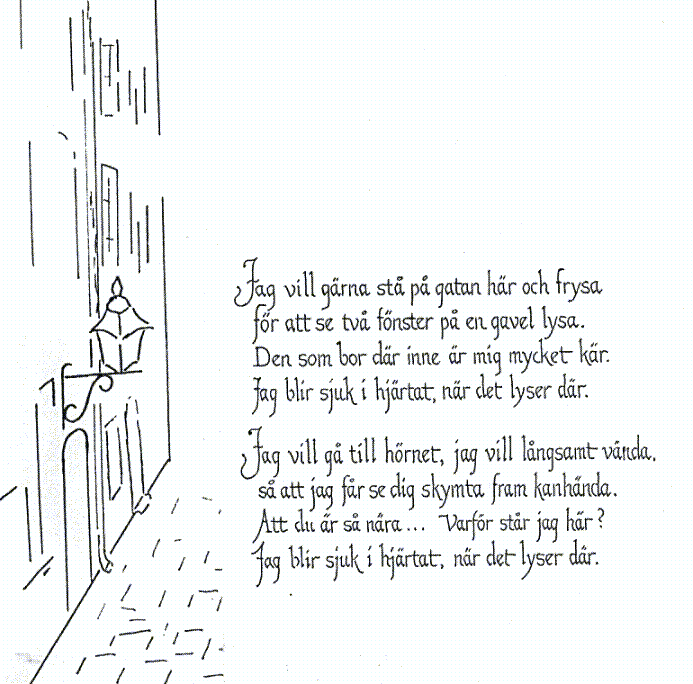 Jag vill gärna stå på gatan här och frysa
för att se två fönster på en gavel lysa.
Den som bor där inne är mig mycket kär.
Jag blir sjuk i hjärtat, när det lyser där.
Jag vill gå till hörnet, jag vill långsamt vända,
så att jag får se dig skymta fram kanhända.
Att du är så nära... Varför står jag här?
Jag blir sjuk i hjärtat, när det lyser där.